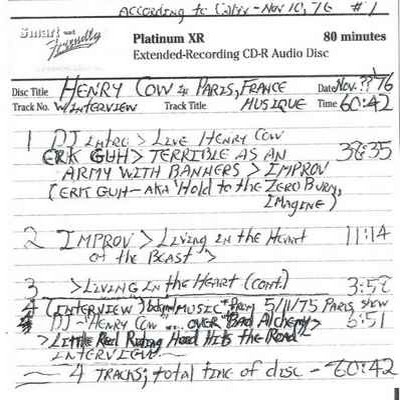 ACCORDING to Calyx - Nov 10, 76 #1
Smart and Friendly
Platinum XR 80 minutes
Extended-Recording CD-R Audio Disc
Disc Title HENRY COW in PARIS, FRANCE Date Nov. ?? '76
Track No. W/INTERVIEW Track Title MUSIQUE Time 60:42
1 DJ intro > LIVE HENRY COW
ERK GUH > TERRIBLE AS AN 38:35
ARMY WITH BANNERS > IMPROV
(ERK GUH - AKA 'Hold to the Zero Burn,
IMAGINE)
2 IMPROV > LIVING IN the HEART 11:14
of the BEAST >
3 > LIVING IN the HEART (cont.) 3:58
4 (INTERVIEW) MUSIC from 5/11/75 PARIS show
DJ - HENRY COW ... OVER "Bad Alchemy > 6:51
> Little Red Riding Hood Hits the Road
INTERVIEW
4 TRACKS; total time of disc - 60:42